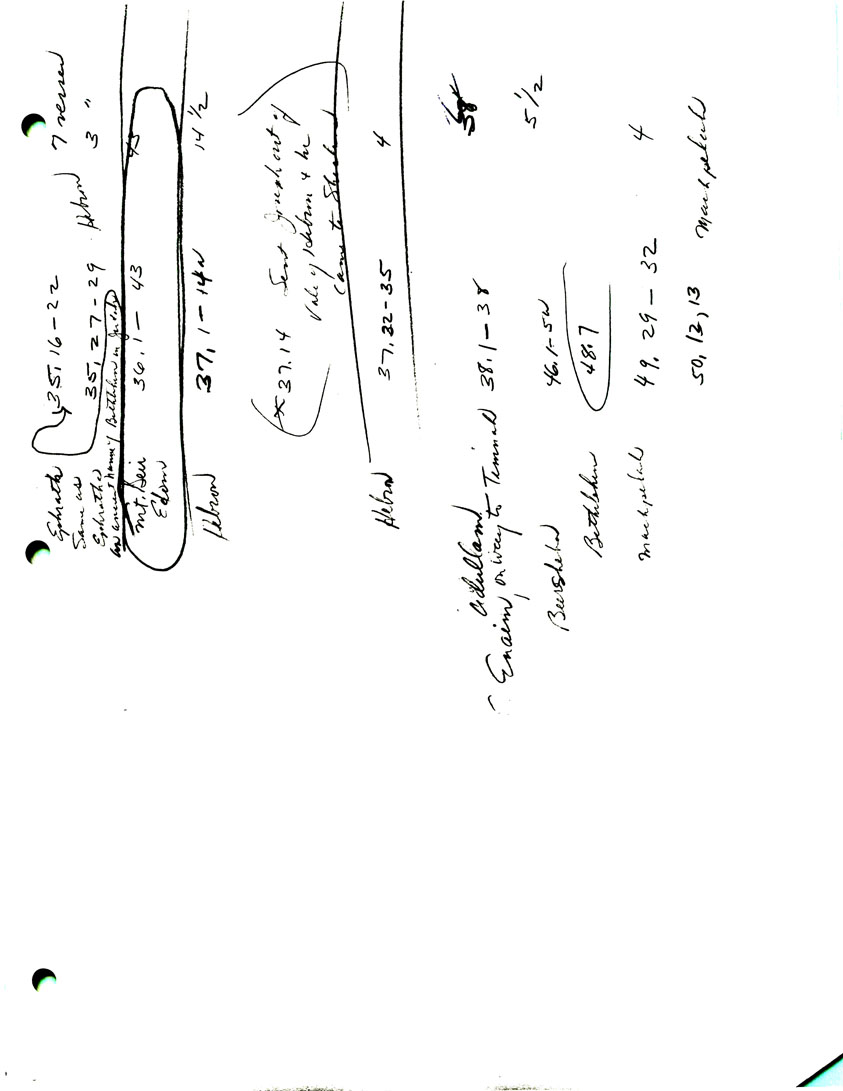 Ephrath 35.16-22 7 verses
Same as 35.27-29 Hebron 3 "
Ephratha
an ancient name of Bethlehem in Judah
Mt. Seir 36.1 - 43 43
Edom
Hebron 37.1-14a 14 1/2
* 37.14 Sent Joseph out of
Vale of Hebron & he
came to Shechem
Hebron 37.32-35 4
Adullam
Enaim, on way to Timnah 38.1-38
Beersheba 46.1-5a 5 1/2
Bethlehem 48.7
Machpelah 49.29-32 4
50,12,13 Machpelah